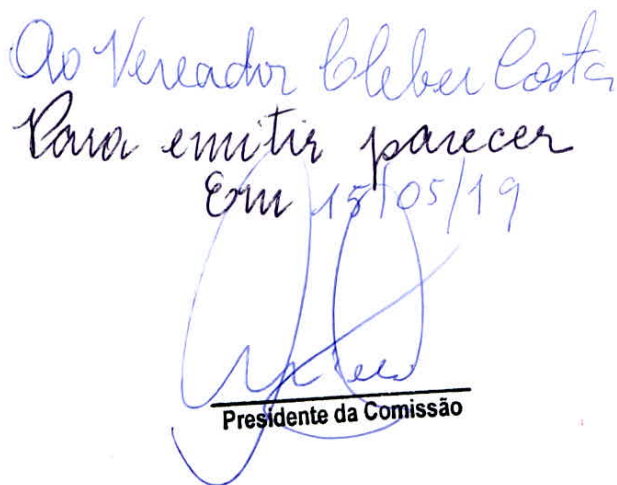 Ao Vereador Cleber Costa
Para emitir parecer
Em 15/05/19
Presidente da Comissão